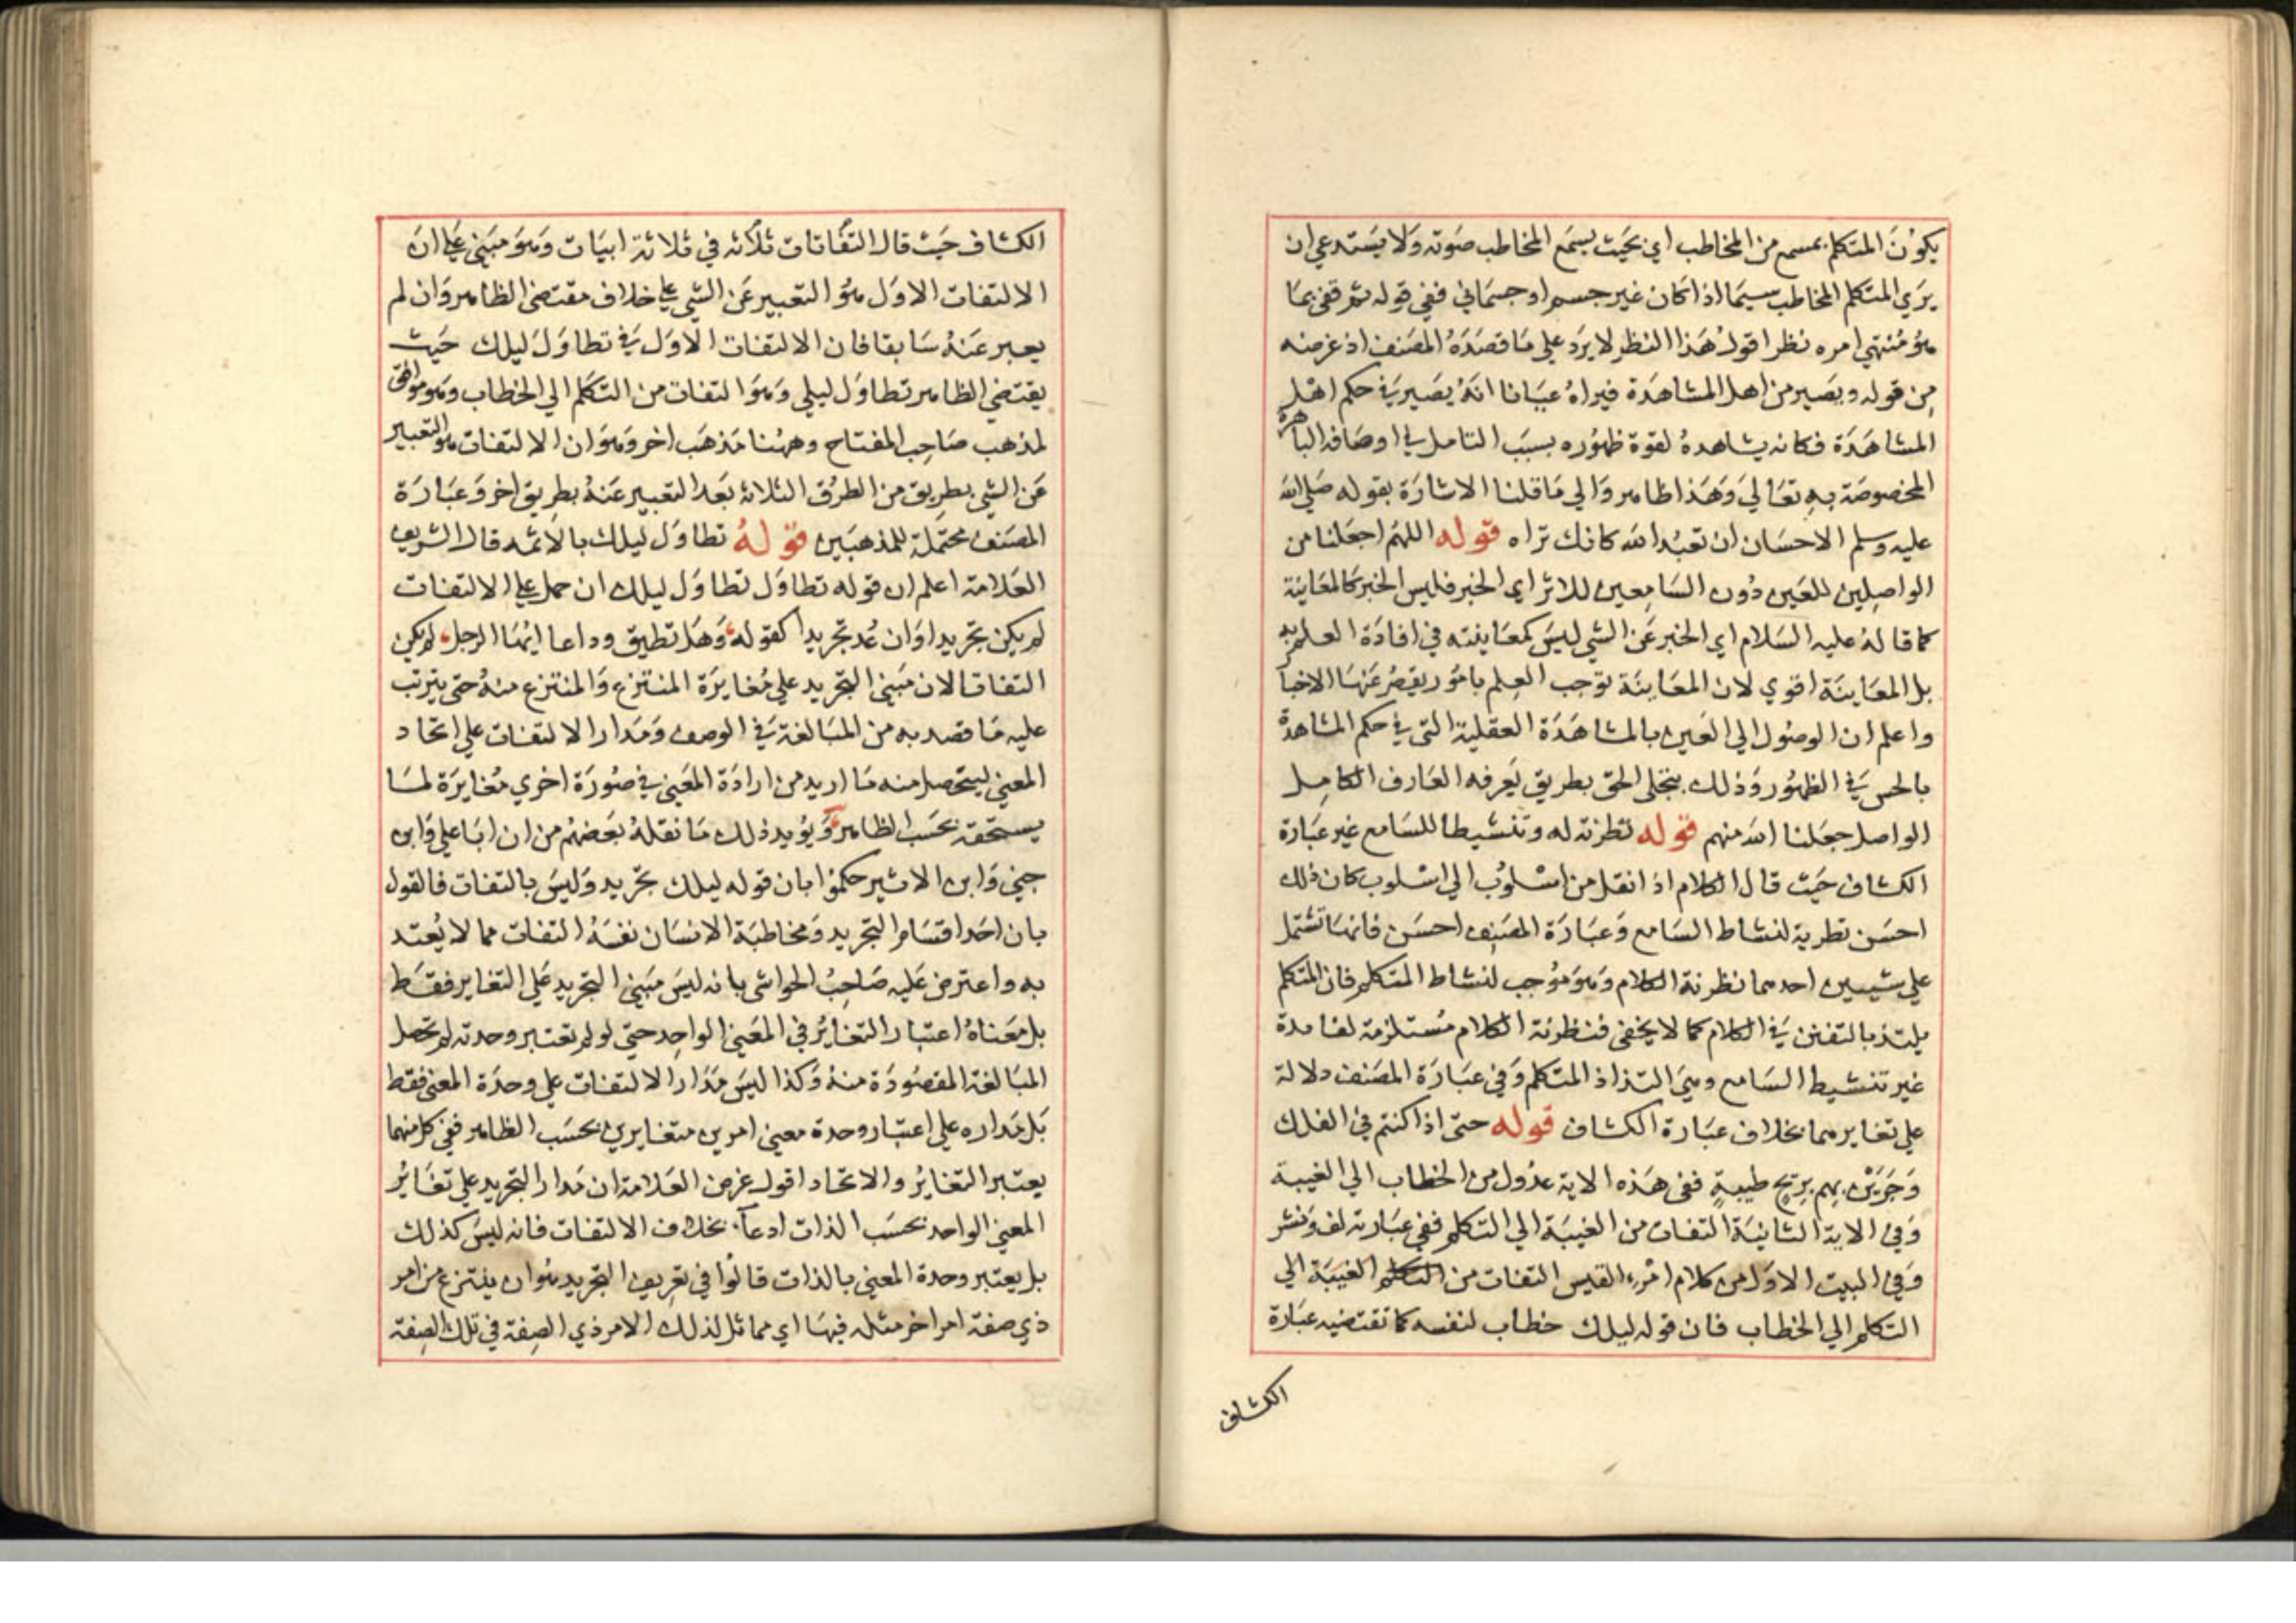 يكون المتكلم بمسمع من المخاطب اي بحيث يسمع المخاطب صوته ولا يستدعي ان
يري المتكلم المخاطب سيما اذا كان غير جسم او جسماني ففي قوله ثم قفي بما
هو منتهي امره نظر اقول هذا النظر لا يرد علي ما قصده المصنف اذ غرضه
من قوله ويصير من اهل المشاهدة فيراه عيانا انه يصير في حكم اهل
المشاهدة فكانه يشاهده لقوة ظهوره بسبب التامل في اوصافه الباهرة
المخصوصة به تعالي وهذا ظاهر والي ما قلنا الاشارة بقوله صلي الله
عليه وسلم الاحسان ان تعبد الله كانك تراه قوله اللهم اجعلنا من
الواصلين للعين دون السامعين للاثر اي الخبر فليس الخبر كالمعاينة
كما قاله عليه السلام اي الخبر عن الشي ليس كمعاينته في افادة العلم به
بل المعاينة اقوي لان المعاينة توجب العلم بامور يقصر عنها الاخبار
واعلم ان الوصول الي العين بالمشاهدة العقلية التي في حكم المشاهدة
بالحس في الظهور وذلك بتجلي الحق بطريق يعرفه العارف الكامل
الواصل جعلنا الله منهم قوله تطرية له وتنشيطا للسامع غير عبارة
الكشاف حيث قال الكلام اذا نقل من اسلوب الي اسلوب كان ذلك
احسن تطرية لنشاط السامع وعبارة المصنف احسن فانها تشتمل
علي شيئين احدهما تطرية الكلام وهو موجب لنشاط المتكلم فان المتكلم
يلتذ بالتفنن في الكلام كما لا يخفي فتطرية الكلام مستلزمة لفائدة
غير تنشيط السامع وهي التذاذ المتكلم وفي عبارة المصنف دلالة
علي تغايرهما بخلاف عبارة الكشاف قوله حتي اذا كنتم في الفلك
وجرين بهم بريح طيبة ففي هذه الاية عدول من الخطاب الي الغيبة
وفي الاية الثانية التفات من الغيبة الي التكلم ففي عبارته لف ونشر
وفي البيت الاول من كلام امرء القيس التفات من التكلم الغيبة الي
التكلم الي الخطاب فان قوله ليلك خطاب لنفسه كما تقتضيه عبارة
الكشاف
الكشاف حيث قال التفاتات ثلاثه في ثلاثة ابيات وهو مبني علي ان
الالتفات الاول هو التعبير عن الشي علي خلاف مقتضي الظاهر وان لم
يعبر عنه سابقا فان الالتفات الاول في تطاول ليلك حيث
يقتضي الظاهر تطاول ليلي وهو التفات من التكلم الي الخطاب وهو موافق
لمذهب صاحب المفتاح وههنا مذهب اخر وهو ان الالتفات هو التعبير
عن الشي بطريق من الطرق الثلاثة بعد التعبير عنه بطريق اخر وعبارة
المصنف محتملة للمذهبين قوله تطاول ليلك بالاثمد قال الشريف
العلامة اعلم ان قوله تطاول تطاول ليلك ان حمل علي الالتفات
لم يكن تجريدا وان عد تجريدا كقوله وهل تطيق وداعا ايها الرجل لم يكن
التفاتا لان مبني التجريد علي مغايرة المنتزع والمنتزع منه حتي يترتب
عليه ما قصد به من المبالغة في الوصف ومدار الالتفات علي اتحاد
المعني ليتحصل منه ما اريد من ارادة المعني في صورة اخري مغايرة لما
يستحقه بحسب الظاهر ويؤيد ذلك ما نقله بعضهم من ان ابا علي وابن
جني وابن الاثير حكموا بان قوله ليلك تجريد وليس بالتفات فالقول
بان احد اقسام التجريد ومخاطبة الانسان نفسه التفات مما لا يعتد
به واعترض عليه صاحب الحواشي بانه ليس مبني التجريد علي التغاير فقط
بل معناه اعتبار التغاير في المعني الواحد حتي لو لم تعتبر وحدته لم تحصل
المبالغة المقصودة منه وكذا ليس مدار الالتفات علي وحدة المعني فقط
بل مداره علي اعتبار وحدة معني امرين متغايرين بحسب الظاهر ففي كل منهما
يعتبر التغاير والاتحاد اقول غرض العلامة ان مدار التجريد علي تغاير
المعني الواحد بحسب الذات ادعاء بخلاف الالتفات فانه ليس كذلك
بل يعتبر وحدة المعني بالذات قالوا في تعريف التجريد هو ان ينتزع من امر
ذي صفة امر اخر مثله فيها اي مماثل لذلك الامر ذي الصفة في تلك الصفة